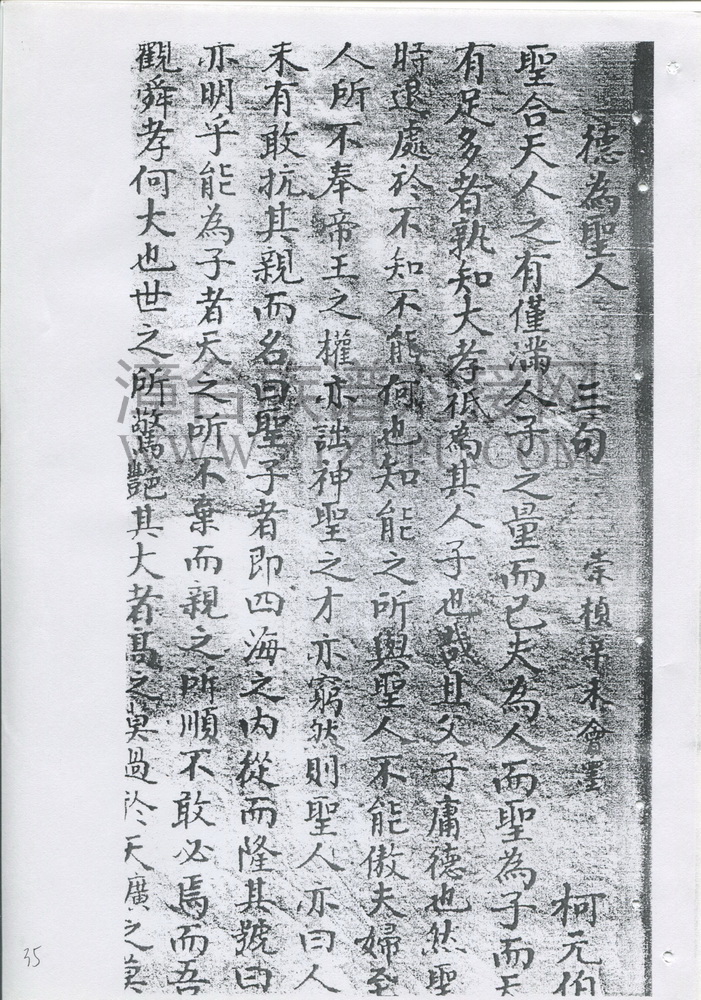 德為聖人 三句 崇禎辛未會墨 柯元伯
聖合天人之有僅滿人子之量而已夫為人而聖為子而天
有足多者孰知大孝祇為其人子也哉且父子庸德也然聖
時退處於不知不能何也知能之所與聖人不能傲夫婦至
人所不奉帝王之權亦詘神聖之才亦窮然則聖人亦曰人
未有敢抗其親而名曰聖子者即四海之內從而隆其號曰
亦明乎能為子者天之所不棄而親之所順不敢必焉而吾
觀舜孝何大也世之所驚艷其大者高之莫過於天廣之莫
漳台族譜
WWW.ZTZUPU.COM
35